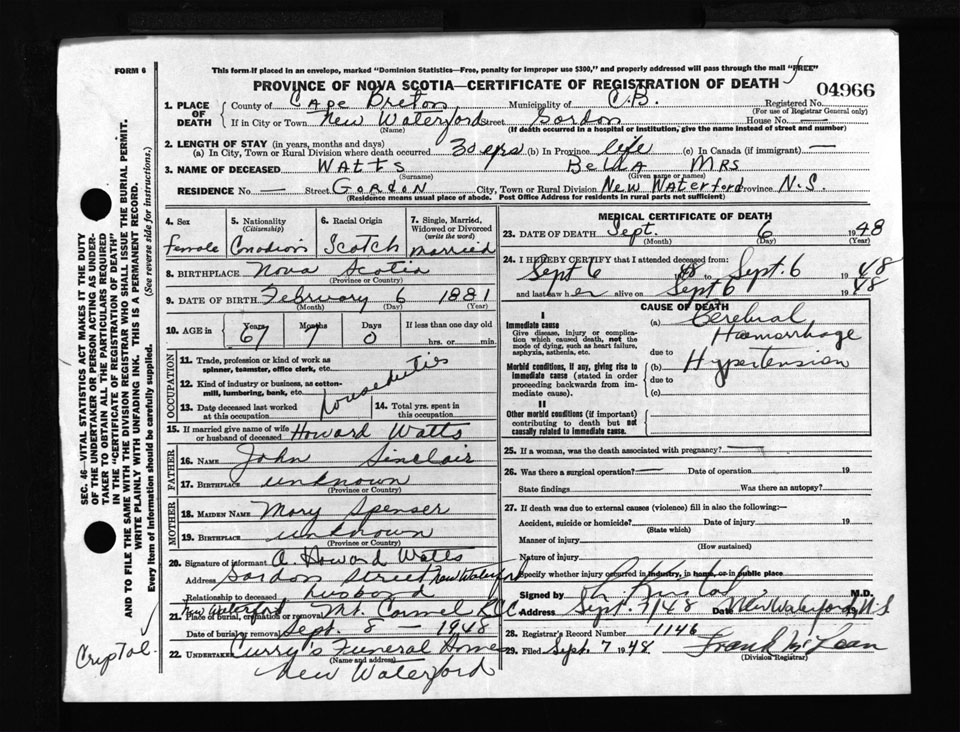 FORM 6
This form if placed in an envelope, marked "Dominion Statistics—Free, penalty for improper use $300," and properly addressed will pass through the mail "FREE"
PROVINCE OF NOVA SCOTIA—CERTIFICATE OF REGISTRATION OF DEATH
04966
1. PLACE OF DEATH
County of Cape Breton Municipality of C.B. Registered No.
(For use of Registrar General only)
If in City or Town New Waterford Street Gordon House No. —
(Name) (If death occurred in a hospital or institution, give the name instead of street and number)
2. LENGTH OF STAY (in years, months and days)
(a) In City, Town or Rural Division where death occurred 30 yrs (b) In Province life (c) In Canada (if immigrant) —
3. NAME OF DECEASED WATTS BELLA MRS
(Surname) (Given name or names)
RESIDENCE No — Street GORDON City, Town or Rural Division New Waterford Province N.S.
(Residence means usual place of abode. Post Office Address for residents in rural parts not sufficient)
4. Sex
female
5. Nationality
(Citizenship)
Canadian
6. Racial Origin
Scotch
7. Single, Married, Widowed or Divorced
(write the word)
married
8. BIRTHPLACE Nova Scotia
(Province or Country)
9. DATE OF BIRTH February 6 1881
(Month) (Day) (Year)
10. AGE in
Years 67
Months 7
Days 0
If less than one day old
hrs. or min.
OCCUPATION
11. Trade, profession or kind of work as spinner, teamster, office clerk, etc.
12. Kind of industry or business, as cotton-mill, lumbering, bank, etc.
houseduties
13. Date deceased last worked at this occupation
14. Total yrs. spent in this occupation
15. If married give name of wife or husband of deceased Howard Watts
FATHER
16. NAME John Sinclair
17. BIRTHPLACE unknown
(Province or Country)
MOTHER
18. MAIDEN NAME Mary Spenser
19. BIRTHPLACE unknown
(Province or Country)
20. Signature of informant A. Howard Watts
Address Gordon Street New Waterford
Relationship to deceased husband
21. Place of burial, cremation or removal New Waterford Mt. Carmel R.C.C.
Date of burial or removal Sept. 8 — 1948
22. UNDERTAKER Curry's Funeral Home
(Name and address)
New Waterford
MEDICAL CERTIFICATE OF DEATH
23. DATE OF DEATH Sept. 6 1948
(Month) (Day) (Year)
24. I HEREBY CERTIFY that I attended deceased from:
Sept 6 1948 to Sept. 6 1948
and last saw her alive on Sept 6 1948
CAUSE OF DEATH
I
Immediate cause
Give disease, injury or complication which caused death, not the mode of dying, such as heart failure, asphyxia, asthenia, etc.
(a) Cerebral Haemorrhage
due to
Morbid conditions, if any, giving rise to immediate cause (stated in order proceeding backwards from immediate cause).
(b) Hypertension
due to
(c)
II
Other morbid conditions (if important) contributing to death but not causally related to immediate cause.
25. If a woman, was the death associated with pregnancy? —
26. Was there a surgical operation? — Date of operation 19
State findings Was there an autopsy?
27. If death was due to external causes (violence) fill in also the following:—
Accident, suicide or homicide? Date of injury 19
(State which)
Manner of injury
(How sustained)
Nature of injury
Specify whether injury occurred in industry, in home, or in public place
Signed by M.D.
Address Sept. 7/48 Date New Waterford, N.S
28. Registrar's Record Number 1146
29. Filed Sept. 7 1948 Frank McLean
(Division Registrar)
SEC. 46—VITAL STATISTICS ACT MAKES IT THE DUTY OF THE UNDERTAKER OR PERSON ACTING AS UNDERTAKER TO OBTAIN ALL THE PARTICULARS REQUIRED IN THE "CERTIFICATE OF REGISTRATION OF DEATH" AND TO FILE THE SAME WITH THE DIVISION REGISTRAR WHO SHALL ISSUE THE BURIAL PERMIT.
WRITE PLAINLY WITH UNFADING INK. THIS IS A PERMANENT RECORD.
Every item of information should be carefully supplied. (See reverse side for instructions.)